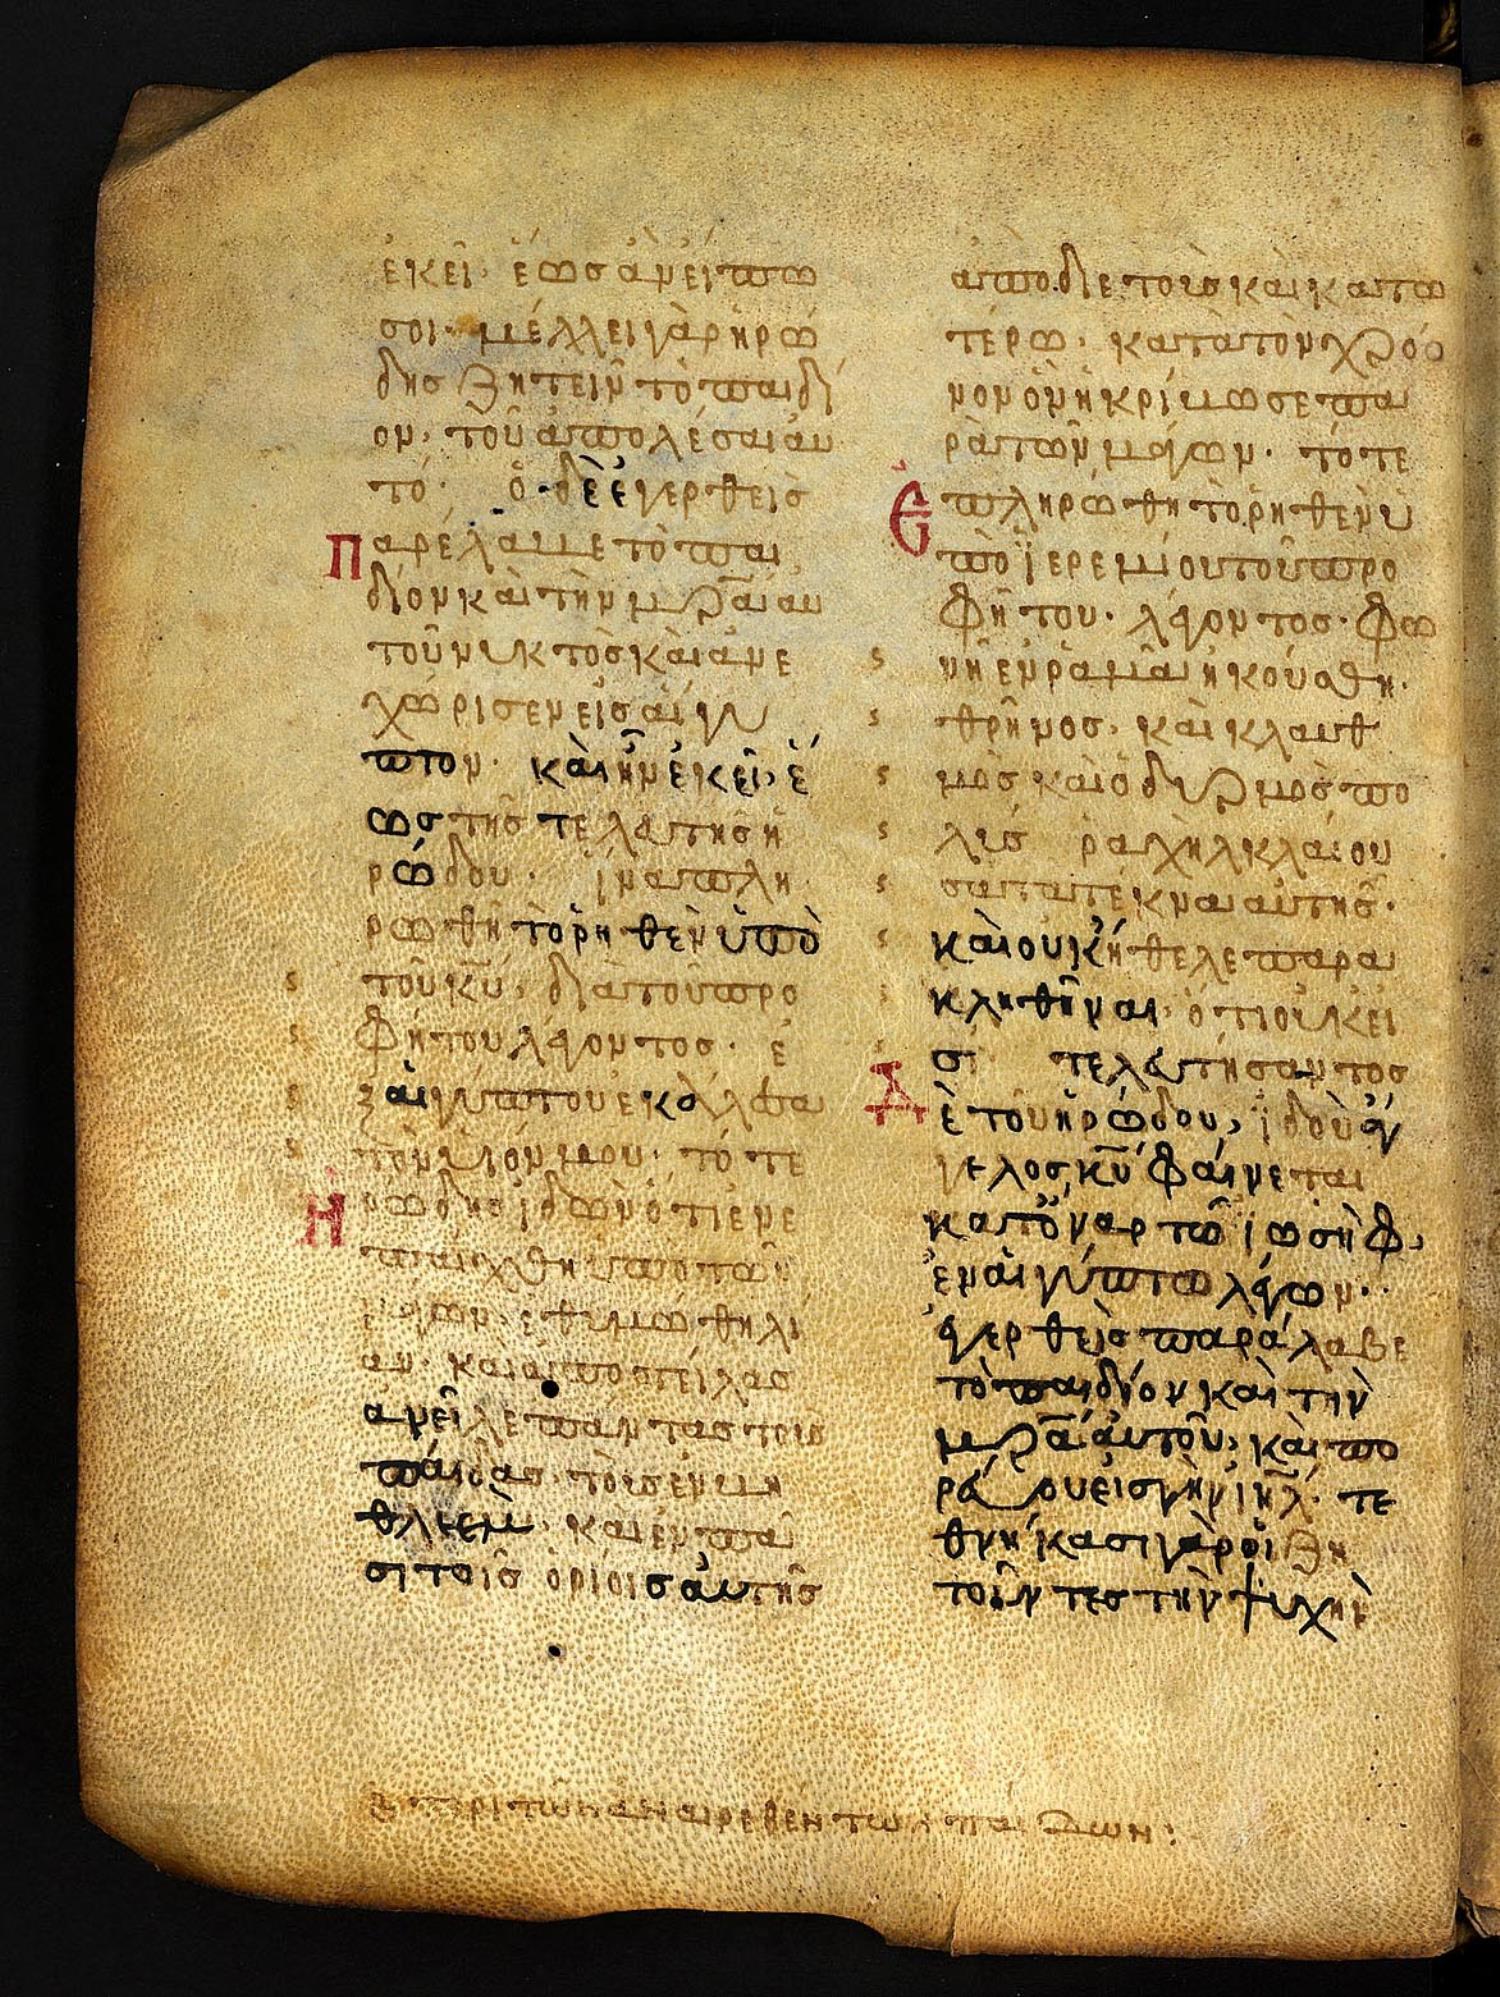 ἐκεῖ· ἕως ἂν εἴπω
σοι· μέλλει γὰρ ἡρώ
δης ζητεῖν τὸ παιδί
ον, τοῦ ἀπολέσαι αυ
τό· ὁ δὲ ἐγερθεὶς
Παρέλαβε τὸ παι
δίον καὶ τὴν μρ̅α αυ
τοῦ νυκτὸς καὶ ἀνε
χώρισεν εἰς αἴγυ
πτον· καὶ ἦν ἐκεῖ, ἕ
ως τῆς τελευτῆς ἡ
ρώδου· ἵνα πλη
ρωθῆ τὸ ῥηθὲν ὑπὸ
τοῦ κ̅υ, διὰ τοῦ προ
φήτου λέγοντος· ἐ
ξ αἰγύπτου ἐκάλεσα
τὸν υἱόν μου· τότε
Ηρώδης ἰδὼν ὅτι ἐνε
παίχθη ὑπὸ τῶν
μάγων, ἐθυμώθη λί
αν· καὶ ἀποστείλας
ἀνεῖλε πάντας τοὺς
παῖδας τοὺς ἐν βη
θλεὲμ, καὶ ἐν πᾶ
σι τοῖς ὁρίοις αὐτῆς
ἀπὸ διετοῦς καὶ κατω
τέρω· κατὰ τὸν χρό
νον ὃν ἠκρίβωσε πα
ρὰ τῶν μάγων· τότε
Επληρώθη τὸ ῥηθὲν ὑ
πὸ ϊερεμίου τοῦ προ
φήτου· λέγοντος· φω
νὴ ἐν ραμᾶ ἠκούσθη·
θρῆνος· καὶ κλαυθ
μὸς καὶ ὀδυρμὸς πο
λύς ῥαχὴλ κλαίου
σα τὰ τέκνα αὐτῆς·
καὶ οὐκ ἤθελε παρα
κληθῆναι· ὅτι οὐκ εἰ
σί τελευτήσαντος
Δὲ τοῦ ἡρώδου, ϊδοὺ ἄγ
γελος κ̅υ φαίνεται
κατ' ὄναρ τῶ ϊωσὴφ,
ἐν αἰγύπτω λέγων·
ἐγερθεὶς παράλαβε
τὸ παιδίον καὶ τὴν
μρ̅α αὐτοῦ, καὶ πο
ρεύου εἰς γῆν ιη̅λ· τε
θνήκασι γὰρ οἱ ζη
τοῦντες τὴν ψυχὴν
περὶ τῶν ἀναιρεθέντων παίδων: